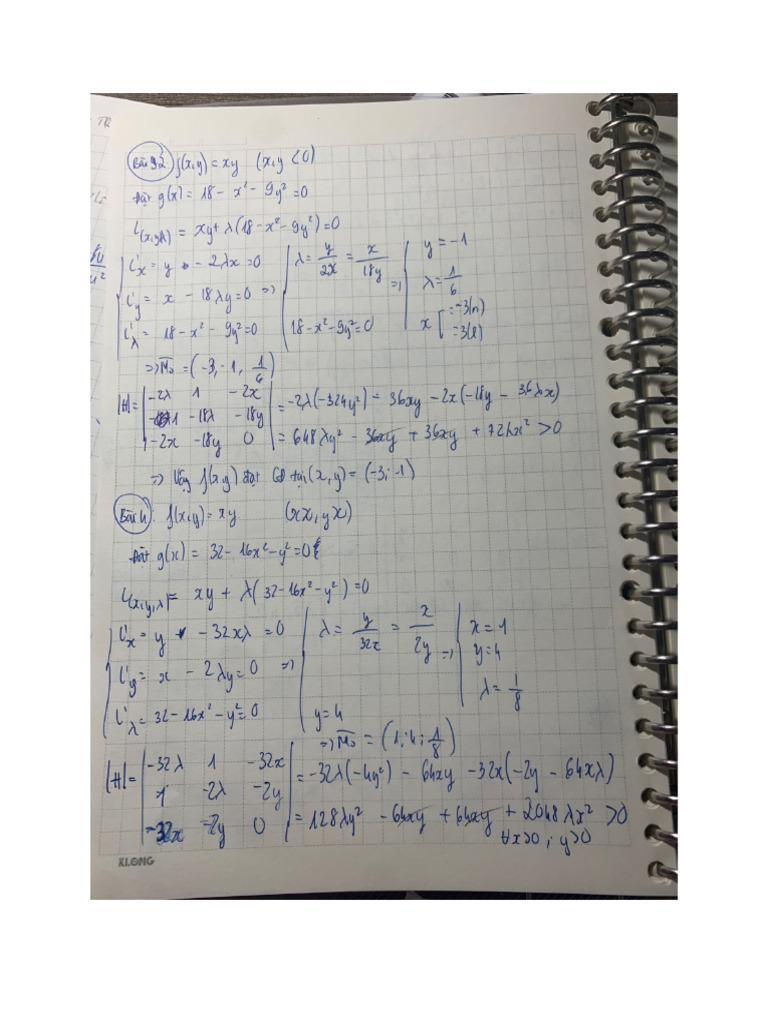 Bài 92 f(x,y) = xy (x,y < 0)
Đặt g(x) = 18 - x² - 9y² = 0
L(x,y,λ) = xy + λ(18 - x² - 9y²) = 0
L'x = y - 2λx = 0
L'y = x - 18λy = 0 =>
L'λ = 18 - x² - 9y² = 0
λ = y/2x = x/18y
18 - x² - 9y² = 0
=>
y = -1
λ = 1/6
x [ = -3(n)
= 3(l)
=> M₀ = (-3, -1, 1/6)
|H| = | -2λ 1 -2x |
| 1 -18λ -18y |
| -2x -18y 0 |
= -2λ(-324y²) - 36xy - 2x(-18y - 36λx)
= 648λy² - 36xy + 36xy + 72λx² > 0
=> Vậy f(x,y) đạt CĐ tại (x,y) = (-3; -1)
Bài 4: f(x,y) = xy (x>, y>)
Đặt g(x) = 32 - 16x² - y² = 0
L(x,y,λ) = xy + λ(32 - 16x² - y²) = 0
L'x = y - 32xλ = 0
L'y = x - 2λy = 0 =>
L'λ = 32 - 16x² - y² = 0
λ = y/32x = x/2y
y = 4
=>
x = 1
y = 4
λ = 1/8
=> M₀ = (1; 4; 1/8)
|H| = | -32λ 1 -32x |
| 1 -2λ -2y |
| -32x -2y 0 |
= -32λ(-4y²) - 64xy - 32x(-2y - 64xλ)
= 128λy² - 64xy + 64xy + 2048λx² > 0
∀x>0; y>0
KLONG